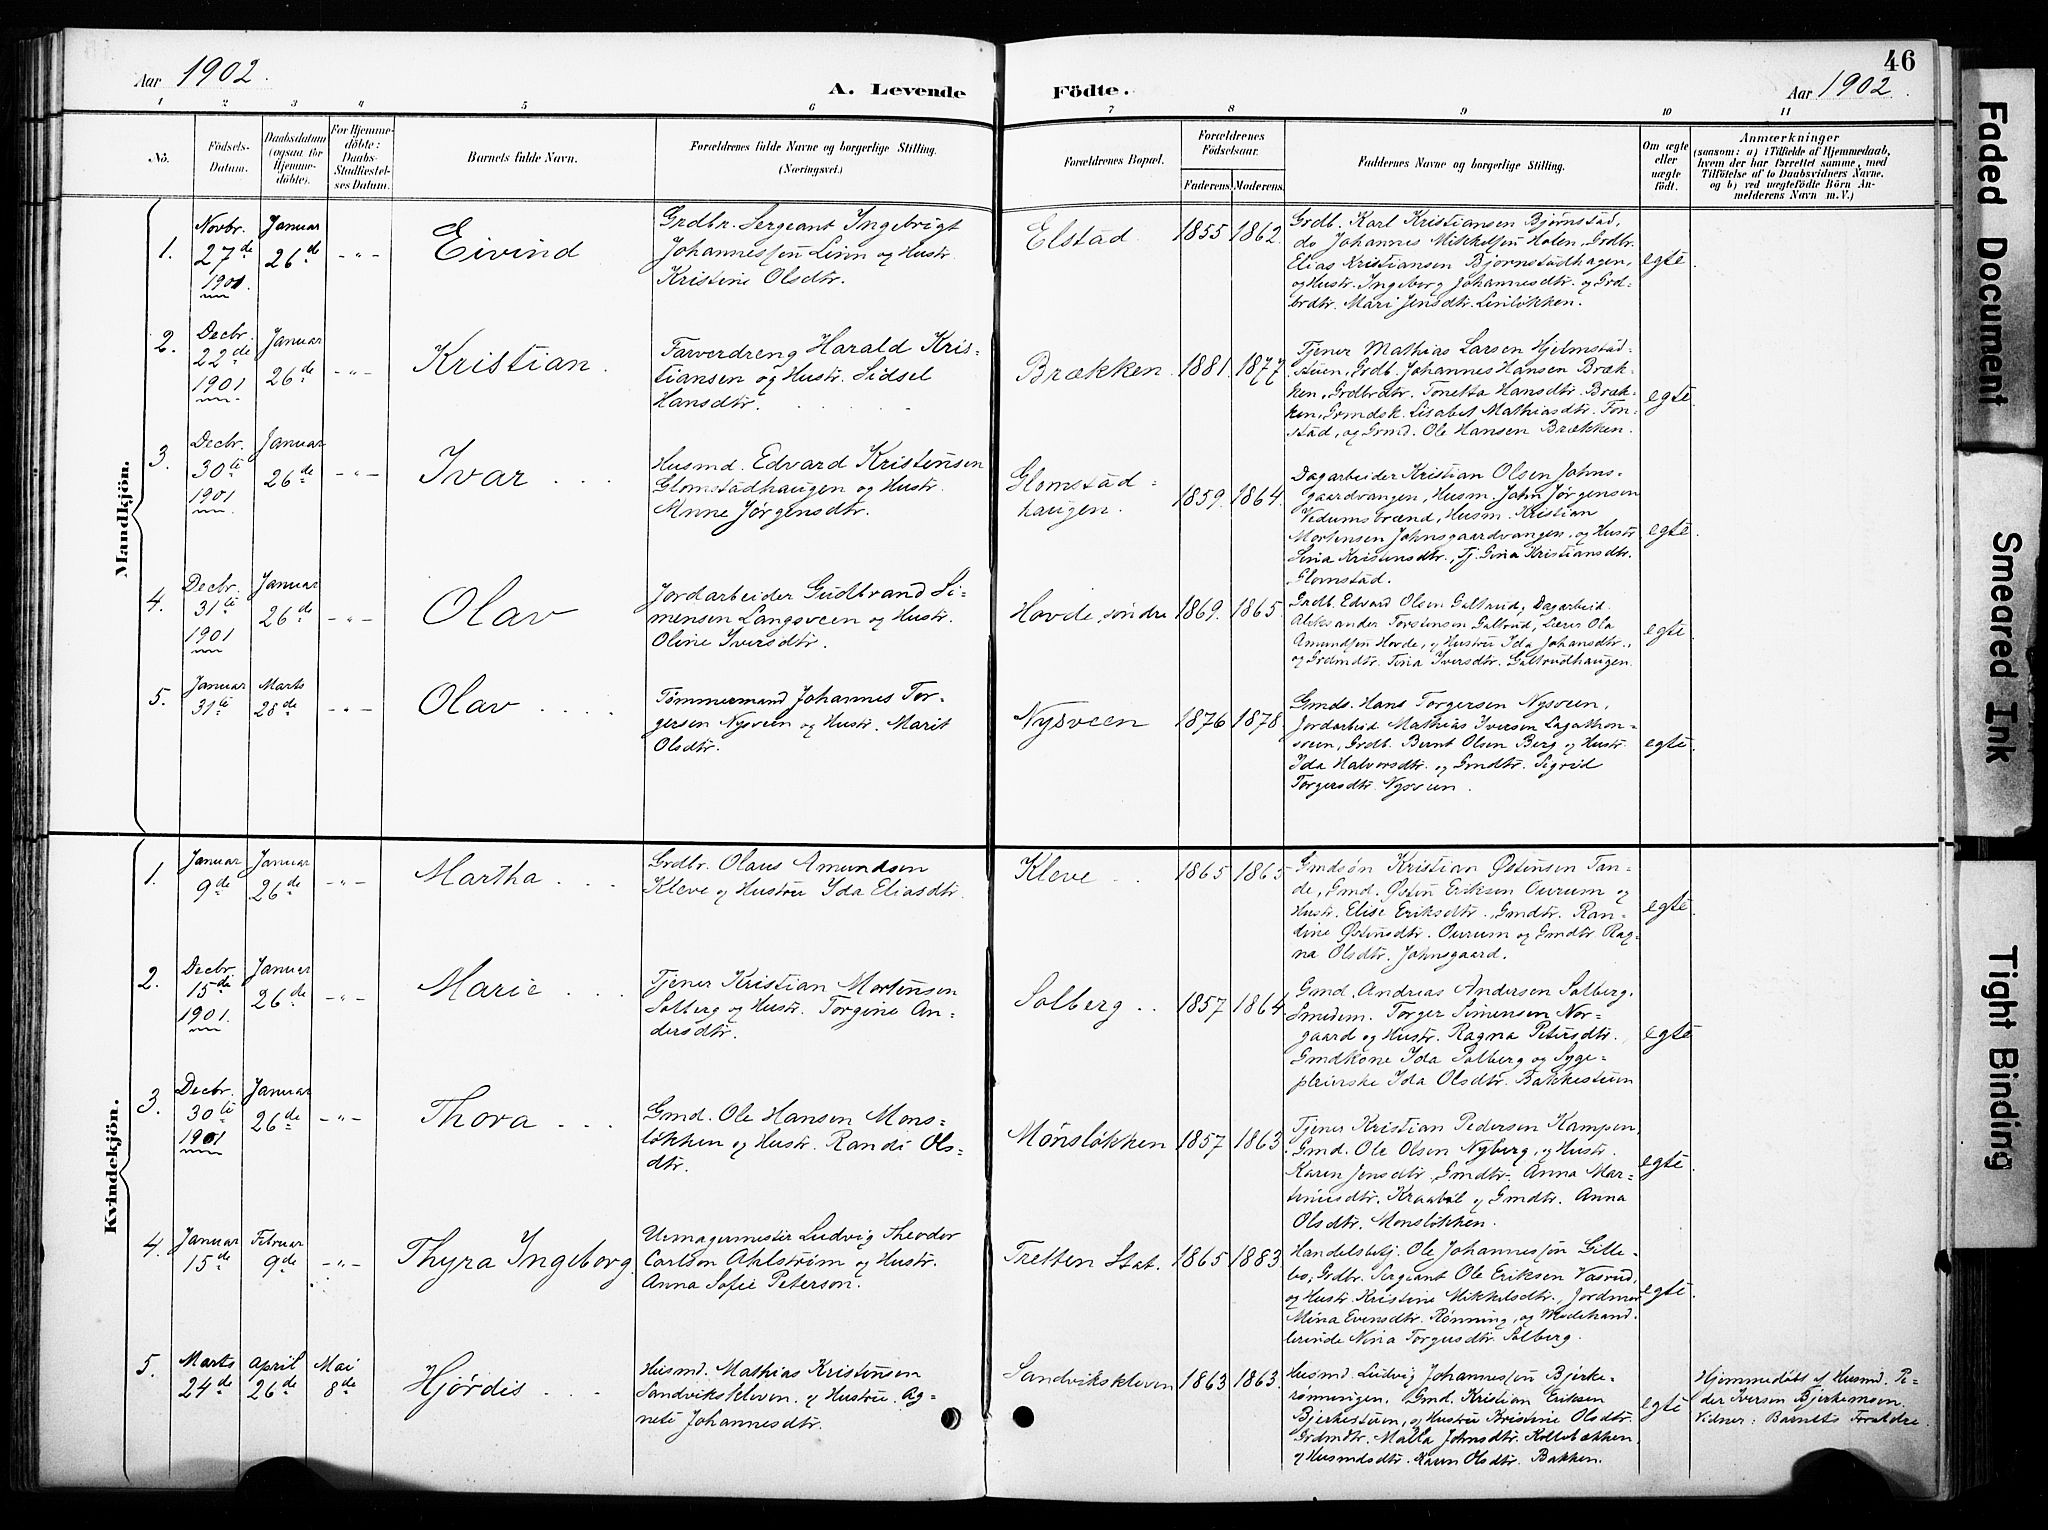 46
Aar 1902.
A. Levende Födte.
Aar 1902.
1 2 3 4 5 6 7 8 9 10 11
No.
Födsels-
Datum.
Daabsdatum
(ogsaa for
Hjemme-
döbte).
For Hjemme-
döbte:
Daabs-
Stadfæstel-
ses Datum.
Barnets fulde Navn.
Forældrenes fulde Navne og borgerlige Stilling.
(Næringsvei.)
Forældrenes Bopæl.
Forældrenes
Födselsaar.
Faderens. Moderens.
Faddernes Navne og borgerlige Stilling.
Om ægte
eller
uægte
födt.
Anmærkninger
(saasom: a) i Tilfælde af Hjemmedaab,
hvem der har forrettet samme, med
Tilföielse af to Daabsvidners Navne.
og b) ved uægtefödte Börn An-
melderens Navn m. V.)
Mandkjön.
1.
Novbr.
27de
1901.
Januar
26de
-"-
Eivind
Grdbr. Sergeant Ingebrigt
Johannessen Linn og Hustr.
Kristine Olsdtr.
Elstad
1855 1862.
Grdb. Karl Kristiansen Bjørnstad,
do Johannes Mikkelsen Holen, Grdbr.
Elias Kristiansen Bjørnstadhagen,
og Hustr. Ingeborg Johannesdtr. og Grd-
brdtr. Mari Jensdtr. Linløkken.
egte.
2.
Decbr.
22de
1901
Januar
26de
-"-
Kristian
Farverdreng Harald Kris-
tiansen og Hustr. Sidsel
Hansdtr.
Brækken.
1881. 1877.
Tjener Mathias Larsen Hjelmstad-
stuen, Grdb. Johannes Hansen Bræk-
ken, Grdbrdtr. Tonetta Hansdtr. Bræk-
ken, Grmdsk. Lisabet Mathiasdtr. Ton-
stad, og Grmd. Ole Hansen Brækken.
egte.
3.
Decbr.
30te
1901
Januar
26de
-"-
Ivar
Husmd. Edvard Kristensen
Glomstadhaugen og Hustr.
Anne Jørgensdtr.
Glomstad-
haugen.
1859. 1864.
Dagarbeider Kristian Olsen Johns-
gaardvangen, Husm. John Jørgensen
Vedumsbrænd, Husm. Kristian
Mortensen Johnsgaardvangen, og Hustr.
Lina Kristensdtr., Tj. Gina Kristiansdtr.
Glomstad.
egte.
4.
Decbr.
31te
1901
Januar
26de
-"-
Olav
Jordarbeider Gudbrand Si-
mensen Langsveen og Hustr.
Oline Iversdtr.
Hovde, søndre
1869. 1865.
Grdb. Edvard Olsen Galtrud, Dagarbeid.
Aleksander Torstensen Galtrud, Lærer Ola
Amundsen Hovde, og Hustru Ida Johansdtr.,
og Grdmdtr. Tina Iversdtr. Galtrudhaugen.
egte.
5.
Januar
31te
Marts
28de
-"-
Olav
Tømmermand Johannes Tor-
gersen Nysveen og Hustr. Marit
Olsdtr.
Nysveen
1876 1878.
Gmds. Hans Torgersen Nysveen,
Jordarbeid. Mathias Iversen
sveen, Grdb. Bernt Olsen Berg og Hustr.
Ida Halvorsdtr. og Gmdtr. Sigrid
Torgersdtr. Nysveen.
egte.
Kvindekjön.
1.
Januar
9de
Januar
26de
-"-
Martha
Grdbr. Olaus Amundsen
Kleve og Hustru Ida Eliasdtr.
Kleve
1865 1865
Gmdsøn Kristian Østensen Tan-
de, Gmd. Østen Eriksen Ourum og
Hustr. Elise Eriksdtr. Gmdtr. Ran-
dine Østensdtr. Ourum og Gmdtr. Rag-
na Olsdtr. Johnsgaard.
egte.
2.
Decbr.
15de
1901.
Januar
26de
-"-
Marie
Tjener Kristian Mortensen
Solberg og Hustr. Torgine An-
dersdtr.
Solberg
1857 1864
Gmd. Andreas Andersen Solberg.
Smedem. Torger Simensen Nor-
gaard og Hustr. Ragna Petersdtr.
Gmdkone Ida Solberg og Syge-
pleierske Ida Olsdtr. Bakkestuen
egte
3.
Decbr.
30te
1901
Januar
26de
-"-
Thora
Gmd. Ole Hansen Møns-
løkken og Hustr. Randi Ols-
dtr.
Mønsløkken
1857 1863.
Tjener Kristian Pedersen Kampen,
Gmd. Ole Olsen Nyberg, og Hustr.
Karen Jensdtr. Gmdtr. Anna Mar-
tinusdtr. Kraabøl og Gmdtr. Anna
Olsdtr. Mønsløkken.
egte.
4.
Januar
15de
Februar
9de
-"-
Thyra Ingeborg.
Urmagermester Ludvig Theodor
Carlson Ahlstrøm og Hustr.
Anna Sofie Peterson.
Tretten Stat.
1865 1883.
Handelsbetj. Ole Johannessen Gille-
bo, Grdbr. Sergeant Ole Eriksen Vasrud,
og Hustr. Kristine Mikkelsdtr., Jordmor
Mina Evensdtr. Rønning, og Modehand-
lerinde Nina Torgersdtr. Solberg.
egte.
5.
Marts
24de
April
26de
Mai
8de
Hjørdis
Husmd. Mathias Kristensen
Sandvikskleven og Hustru Ag-
nete Johannesdtr.
Sandvikskleven
1863 1863.
Husmd. Ludvig Johannessen Bjerke-
rønningen, Gmd. Kristian Eriksen
Bjerkestuen, og Hustru Kristine Olsdtr.
Grdmdtr. Malla Johnsdtr. Kollebækken,
og Husmdsdtr. Karen Olsdtr. Bakken.
egte
Hjemmedøbt af Husmd. Pe-
der Iversen Bjerkemoen.
Vidner: Barnets Forældre.
Faded Document
Smeared Ink
Tight Binding